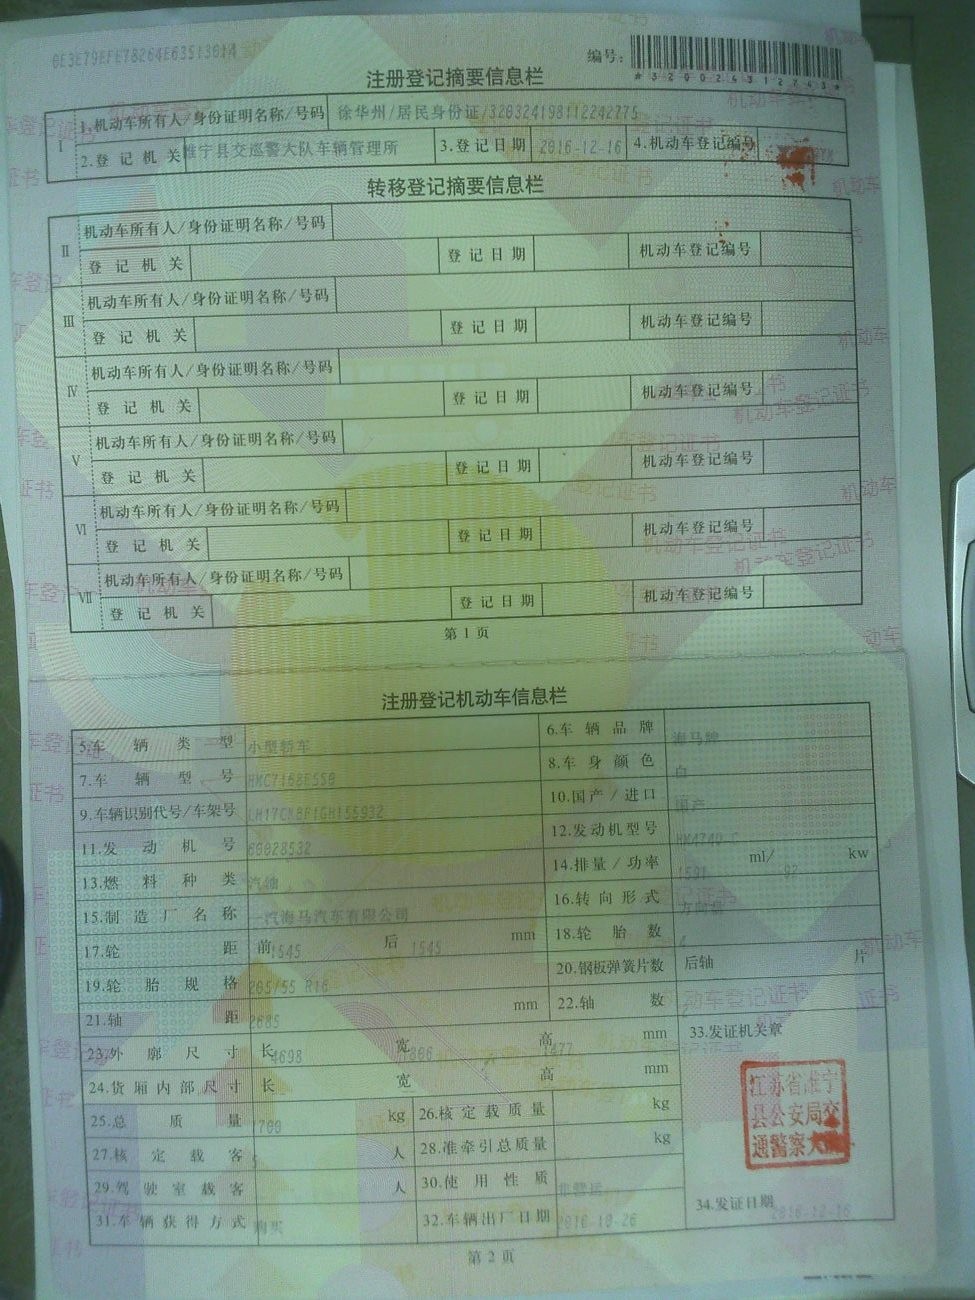 编号:
*320024312743*
注册登记摘要信息栏
I 1.机动车所有人/身份证明名称/号码 徐华州/居民身份证/320324198112242775
2.登记机关 睢宁县交巡警大队车辆管理所 3.登记日期 2016-12-16 4.机动车登记编号
转移登记摘要信息栏
II 机动车所有人/身份证明名称/号码
登记机关 登记日期 机动车登记编号
III 机动车所有人/身份证明名称/号码
登记机关 登记日期 机动车登记编号
IV 机动车所有人/身份证明名称/号码
登记机关 登记日期 机动车登记编号
V 机动车所有人/身份证明名称/号码
登记机关 登记日期 机动车登记编号
VI 机动车所有人/身份证明名称/号码
登记机关 登记日期 机动车登记编号
VII 机动车所有人/身份证明名称/号码
登记机关 登记日期 机动车登记编号
第1页
注册登记机动车信息栏
5.车辆类型 小型轿车 6.车辆品牌 海马牌
7.车辆型号 8.车身颜色 白
9.车辆识别代号/车架号 10.国产/进口 国产
11.发动机号 12.发动机型号
13.燃料种类 汽油 14.排量/功率 ml/ kw
15.制造厂名称 一汽海马汽车有限公司 16.转向形式 方向盘
17.轮距 前 1545 后 1545 mm 18.轮胎数 4
19.轮胎规格 205/55 R16 20.钢板弹簧片数 后轴 片
21.轴距 2685 mm 22.轴数
23.外廓尺寸 长 4698 宽 1806 高 1477 mm 33.发证机关章
24.货厢内部尺寸 长 宽 高 mm
25.总质量 1700 kg 26.核定载质量 kg
27.核定载客 5 人 28.准牵引总质量 kg
29.驾驶室载客 人 30.使用性质 非营运
31.车辆获得方式 购买 32.车辆出厂日期 2016-10-26
江苏省睢宁
县公安局交
通警察大队
34.发证日期 2016-12-16
第2页